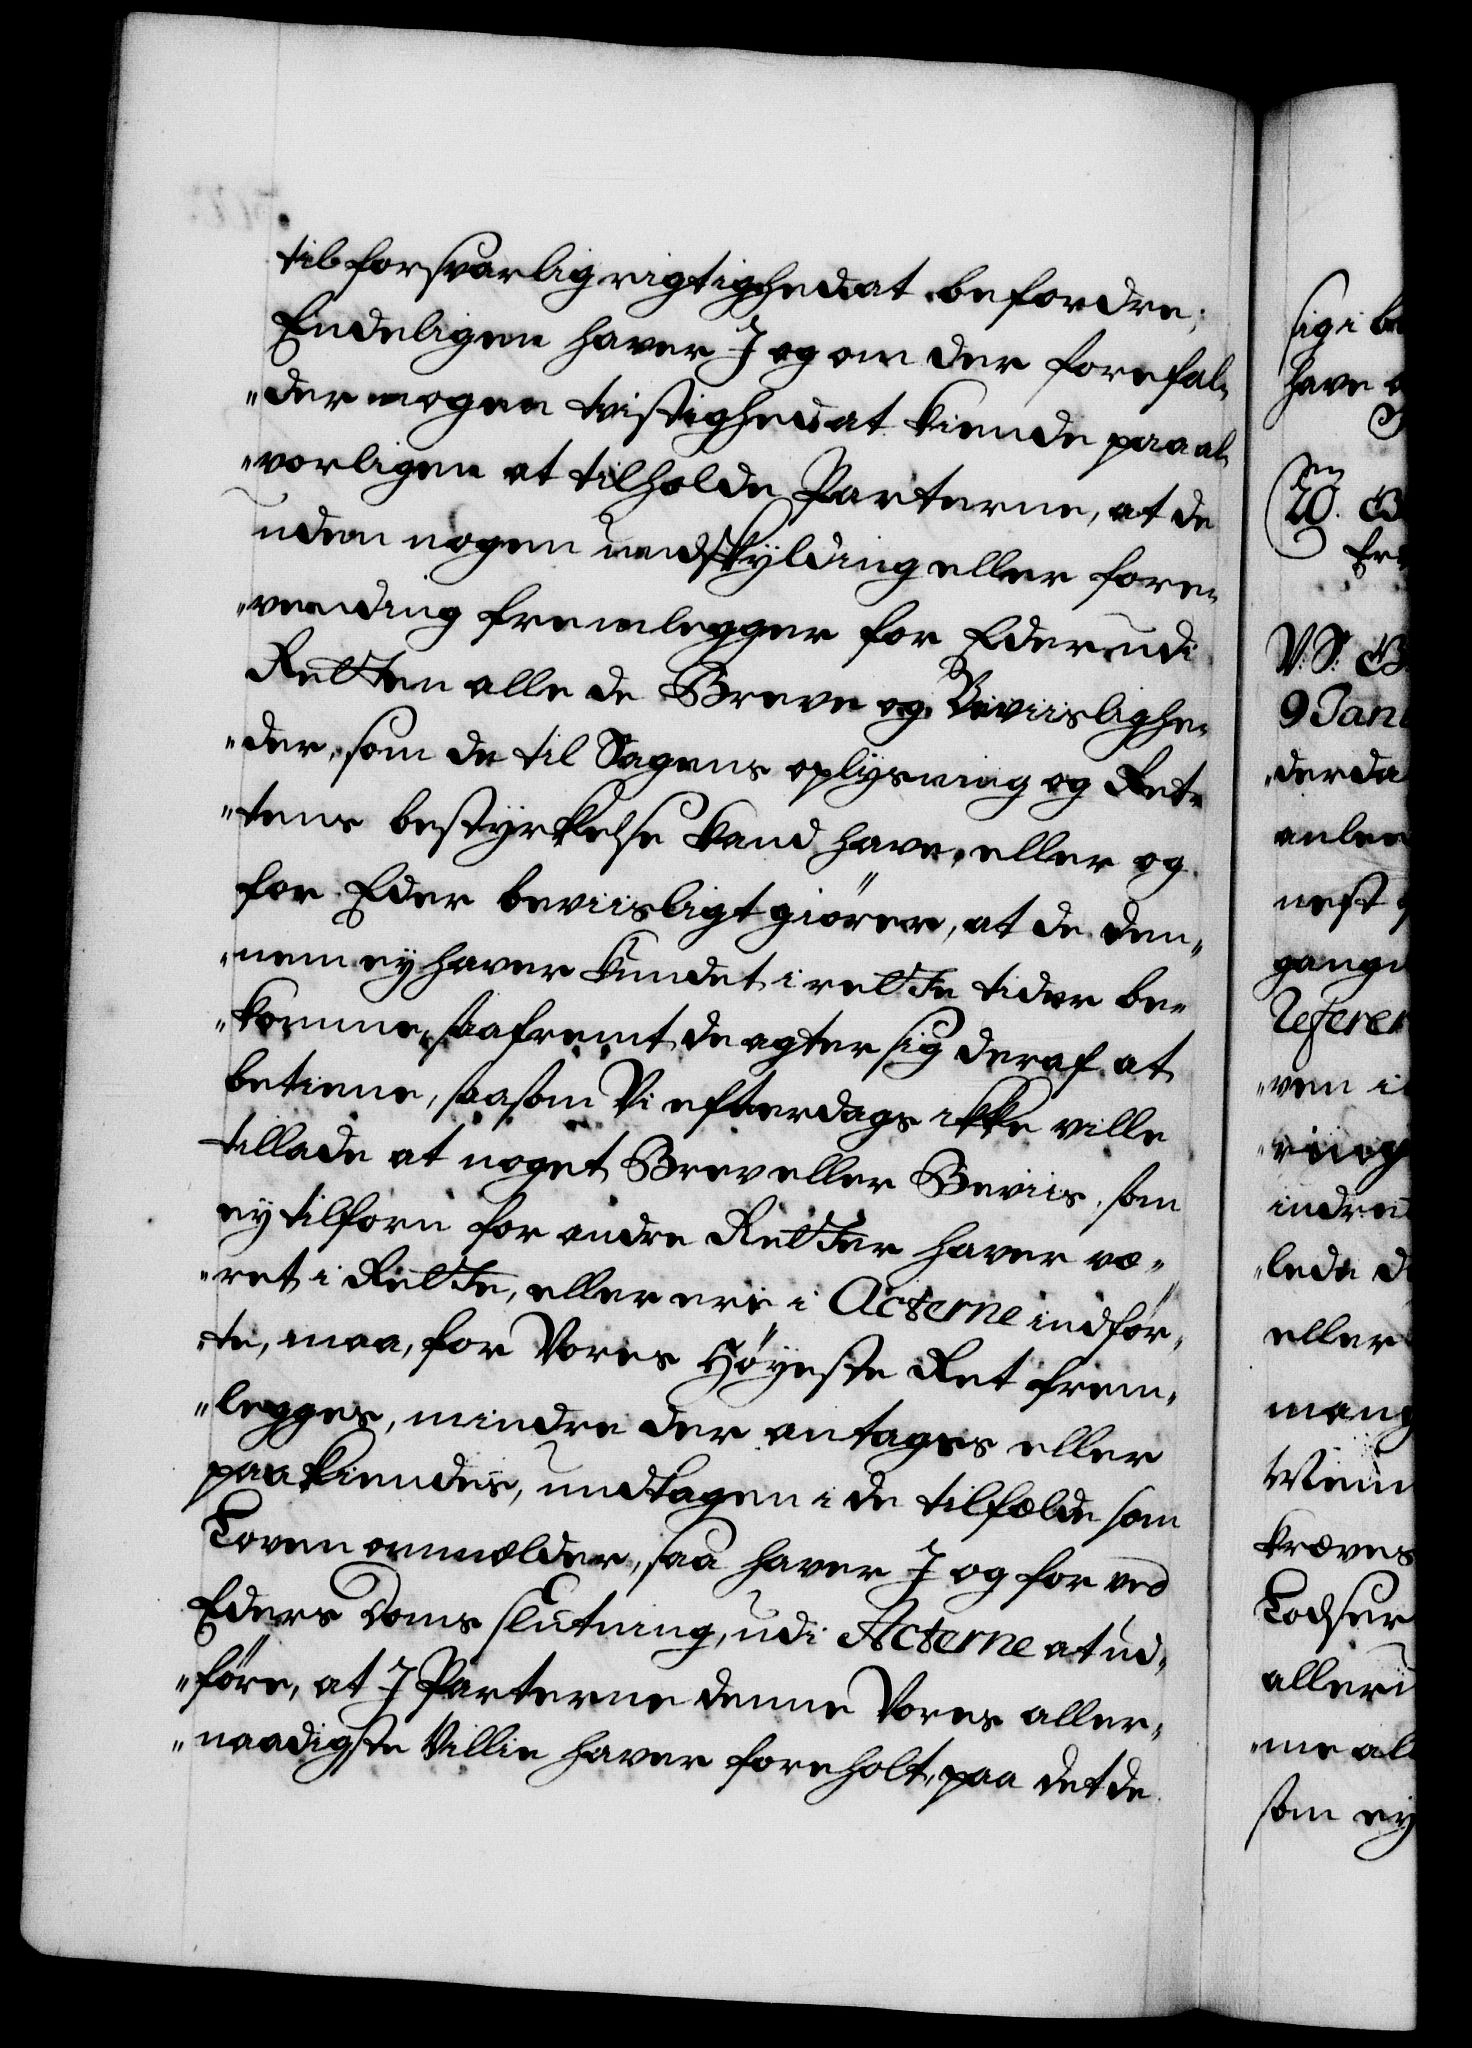 til forsvarlig rigtighed at befordre;
Endeligen haver I og om der forefal„
„der nogen tvistighed at kiende paa al„
„vorligen at tilholde Parterne, at de
uden nogen undskylding eller fore„
„vending fremlegger for Eder udi
Retten alle de Breve og Beviislighe„
„der, som de til Sagens oplysning og Ret„
„tens bestyrkelse kand have, eller og
for Eder beviisligt giörer, at de den„
„nem ey haver kundet i rette tider be„
„komme, saafremt de agter sig deraf at
betiene, saasom Vi efterdags ikke ville
tillade at noget Brev eller Beviis, som
ey tilforn for andre Retter haver væ„
„ret i Rette, eller ere i Acterne indför„
„te, maa, for Vores Höyeste Ret frem„
„legges, mindre der antages eller
paakiendes, undtagen i de tilfælde som
Loven ommælder, saa haver I og for ved
Eders Doms slutning, udi Acterne at ud„
„före, at I Parterne denne Vores aller„
„naadigste Villie haver foreholt, paa det de
sig i be
have
20. B
V: S: B
9 Janu
„derda
anlee
nest
gange
Referer
„ven i
„ring
indre
„lede d
eller
mang
kræves
alleru
„me al
som ey